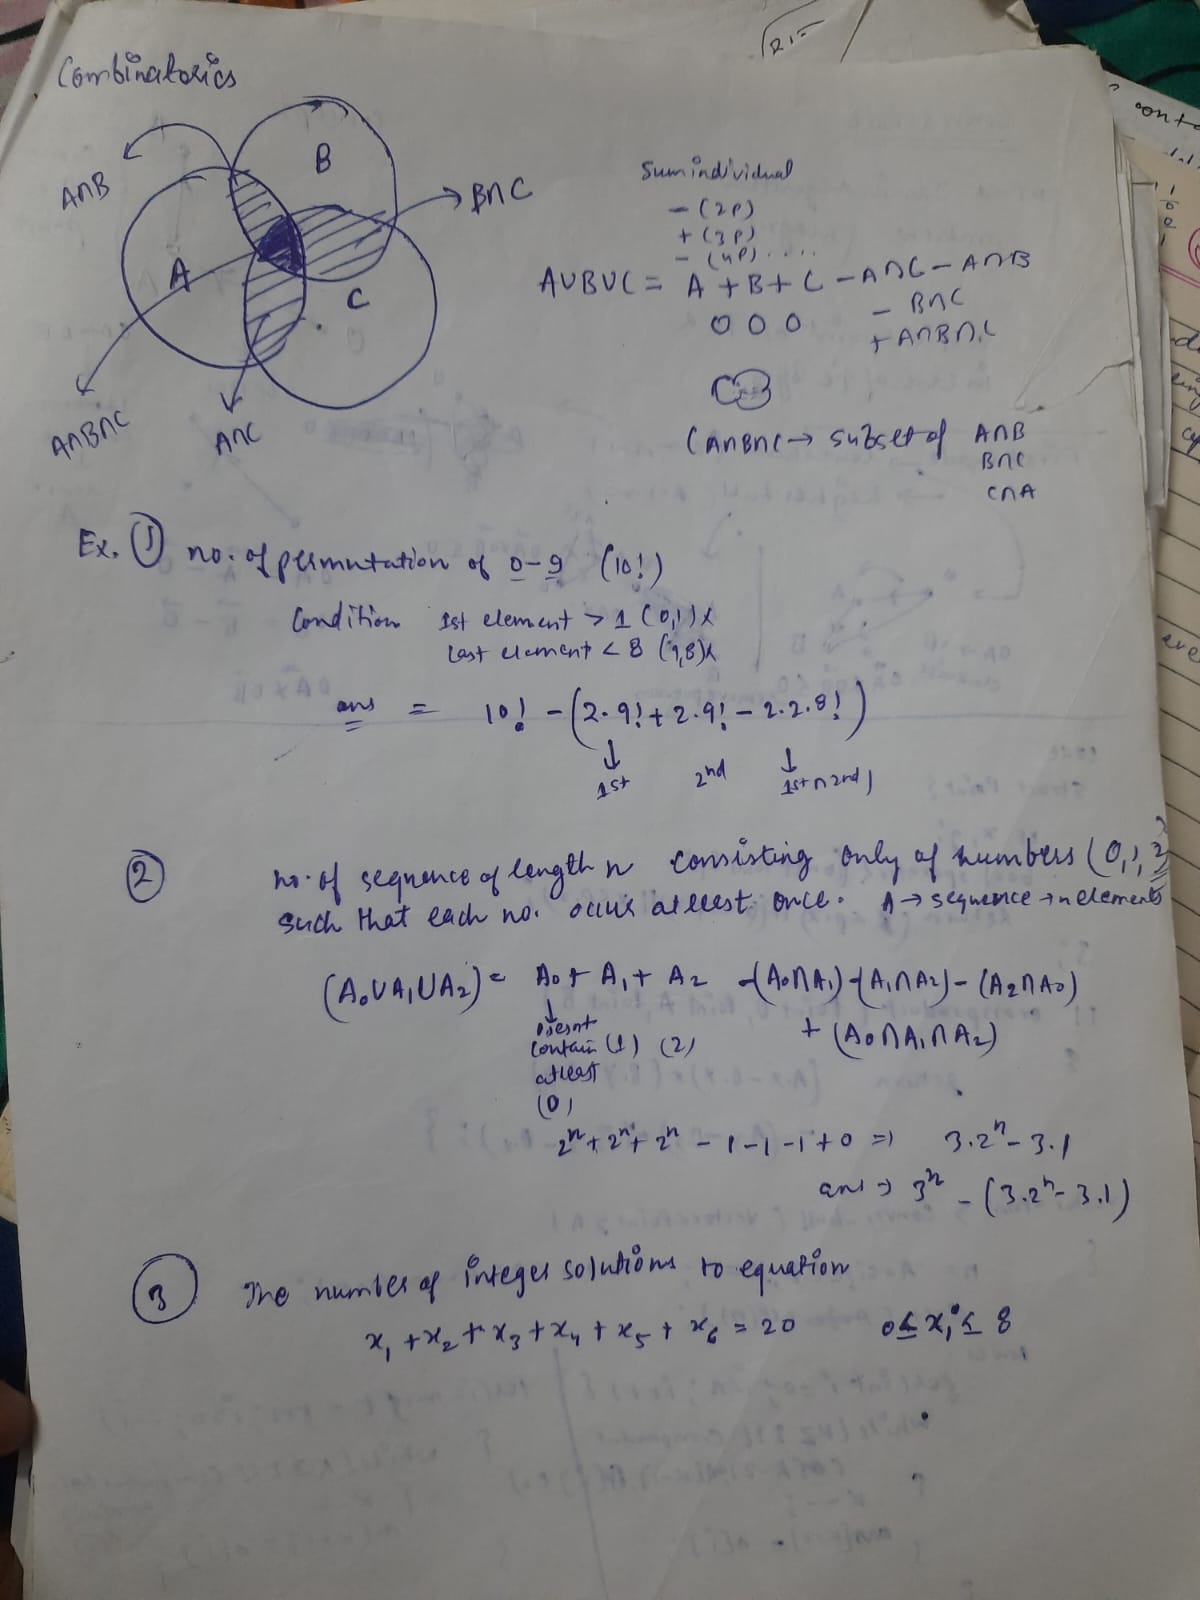 Combinatorics
A∩B
B
B∩C
A
C
A∩B∩C
A∩C
Sum individual
- (2P)
+ (3P)
- (4P) ....
A∪B∪C = A + B + C - A∩C - A∩B
- B∩C
+ A∩B∩C
(A∩B∩C → subset of A∩B
B∩C
C∩A
Ex. ① no. of permutation of 0-9 (10!)
Condition 1st element > 1 (0,1)x
Last element < 8 (9,8)x
ans = 10! - (2.9! + 2.9! - 2.2.8!)
↓ ↓
1st 2nd 1st∩2nd)
② no. of sequence of length n consisting only of numbers (0,1,2)
such that each no. occur atleast once. A → sequence → n elements
(A0∪A1∪A2) = A0 + A1 + A2 -(A0∩A1)-(A1∩A2)-(A2∩A0)
+ (A0∩A1∩A2)
↓
contain (1) (2)
atleast
(0)
2ⁿ + 2ⁿ + 2ⁿ - 1 - 1 - 1 + 0 => 3.2ⁿ - 3.1
ans → 3ⁿ - (3.2ⁿ - 3.1)
③ The number of integer solutions to equation
x₁ + x₂ + x₃ + x₄ + x₅ + x₆ = 20 0 ≤ xᵢ ≤ 8